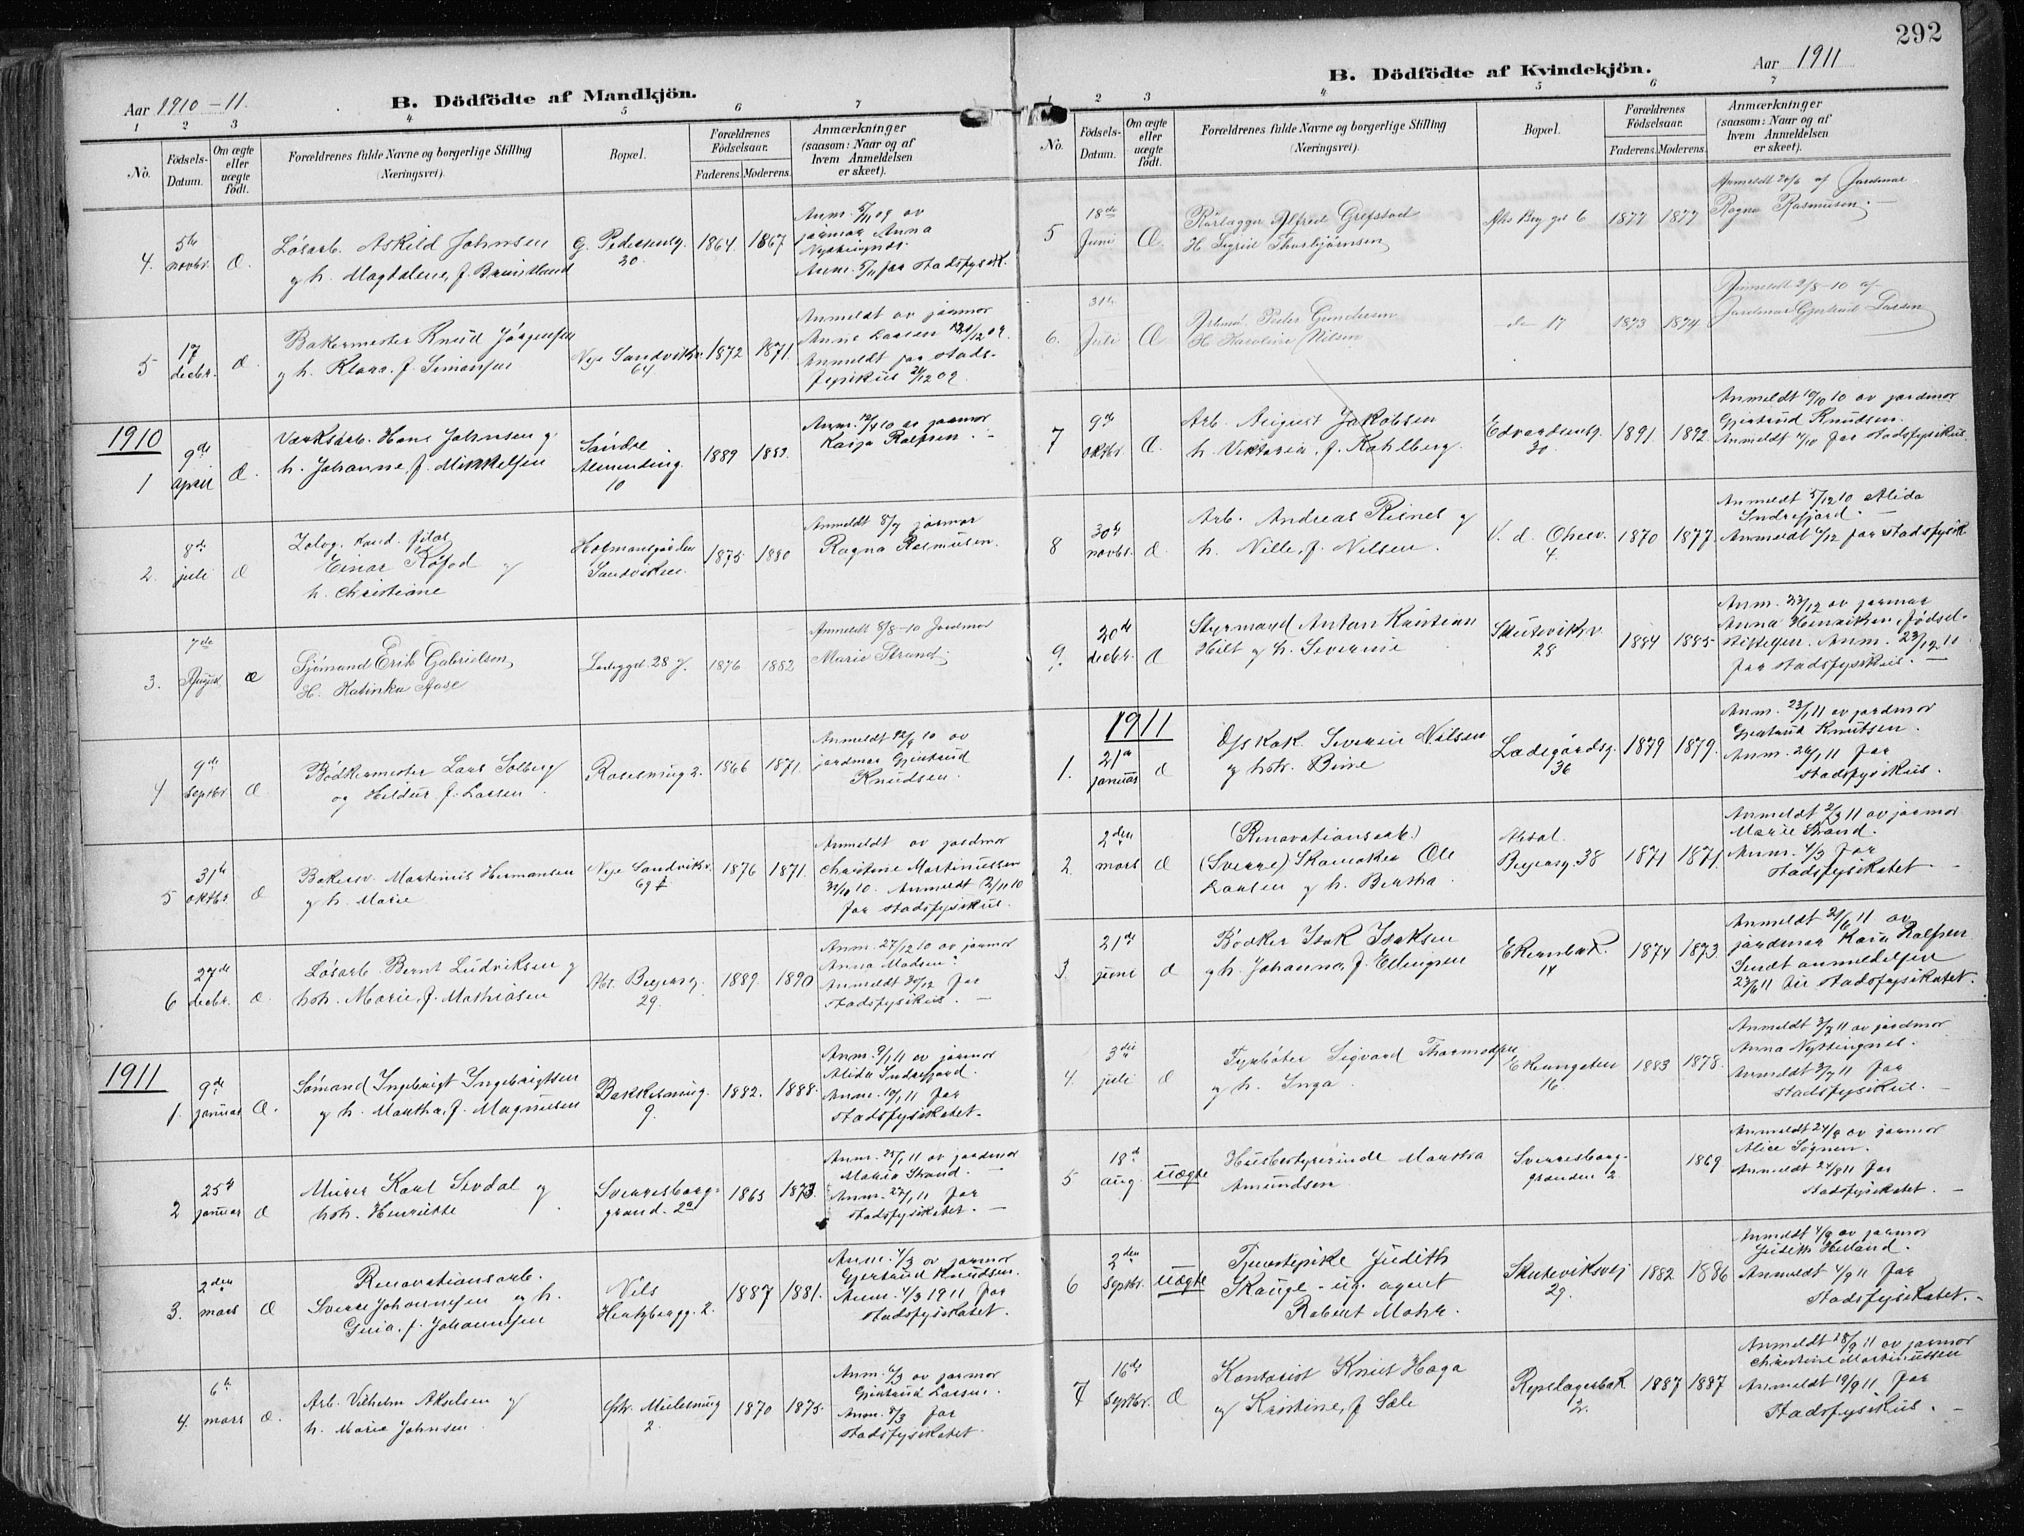 292
Aar 1910-11
B. Dödfödte af Mandkjön.
1 2 3 4 5 6 7
No.
Födsels-Datum.
Om ægte eller uægte födt.
Forældrenes fulde Navne og borgerlige Stilling
(Næringsvei).
Bopæl.
Forældrenes Födselsaar.
Faderens. Moderens.
Anmærkninger
(saasom: Naar og af
hvem Anmeldelsen
er skeet).
4. 5te novbr. Æ.
Løsarb. Askild Johnsen
g h. Magdalene, f.
20.
1864 1867
Anm. 5/11 09 av
jormor Anna
Nyttingnes.
Anm. 5/11 for stadsfysik.
5 17 decbr. Æ.
Bakermester Knud Jørgensen
g h. Klara f. Simonsen
Nye Sandviksv.
64
1872 1871.
Anmeldt av jormor
Anna Larsen
Anmeldt for stads-
fysikus 21/12 09
1910
1 9de april Æ.
Verksarb. Hans Johnsen g
h. Johanne, f. Mikkelsen
Søndre
Almending.
10
1889 1883.
Anm. 12/4 10 av jormor
Kaija Rolfsen.
2. 8de juli Æ
Einar Kofod g
h. Christiane
Sandviken.
1875 1880
Anmeldt 8/7 jormor
Ragna Rasmusen.
3. 7de August Æ
Sjömand Erik Gabrielsen
H. Katinka Aase
Ladeggd. 28
1876 1882
Anmeldt 8/8-10 Jordmor
Marie Strand.
4 9de Septbr. Æ.
Bödkermester Lars Solberg
og Hildur f. Larsen.
Rosesmug 2.
1866 1871.
Anmeldt 12/9 10 av
jordmor Gjertrud
Knudsen.
5 31te oktbr Æ
Bakersv. Martinus Hermansen
g h. Marie
Nye Sandviksv.
69
1876 1871.
Anmeldt av jordmor
Christine Martinussen
Anmeldt 2/11 10
for stadsfysikus.
6 27de decbr. Æ.
Løsarb Bernt Ludviksen g
hst. Marie, f. Mathiasen
Abs. Beyersg.
29.
1889. 1890
Anm. 27/12 10 av jormor
Anna Madsen.
Anmeldt 30/12 for
stadsfysikus.
1911
1. 9de januar Æ.
Sømand Ingebrigt Ingebrigtsen
g h. Martha, f. Magnusen
Bakkesmug.
9.
1882. 1888.
Anm. 9/1 11 av jormor
Alida Indrefjord.
Anm. 10/1 11 for
stadsfysikatet.
2 25de januar Æ
Murer Karl Sevdal g
hst. Henriette
Sverresborg-
grand. 2a
1863 1873.
Anm. 25/1 11 av jordmor
Maria Strand.
Anm. 27/1 11 for
stadsfysikatet.
3. 2den mars Æ
Renovationsarb.
Sverre Johannesen og h.
f. Johannesen
Nils
Hertzbergg. 2.
1887 1881.
Anm. 4/3 av jormor
Gjertrud Knudsen.
Anm. 4/3 1911 for
stadsfysikatet.
4. 6te mars Æ.
Arb. Vilhelm Akselsen g
h. Marie Johnsen
Østr. Mulesmug
2.
1870 1875.
Anm. 6/3 av jormor
Gjertrud Larsen.
Anm. 8/3 for
stadsfysikatet.
B. Dödfödte af Kvindekjön.
Aar 1911
1 2 3 4 5 6 7
No.
Födsels-Datum.
Om ægte eller uægte födt.
Forældrenes fulde Navne og borgerlige Stilling
(Næringsvei).
Bopæl.
Forældrenes Födselsaar.
Faderens. Moderens.
Anmærkninger
(saasom: Naar og af
hvem Anmeldelsen
er skeet).
5 18de Juni Æ.
Rörlægger Alfred Grefstad
H. Sigrid Thorbjørnsen
1877 1877
Anmeldt 20/6 af Jordmor
Ragna Rasmusen.
6. 31te Juli Æ
Peder Gundersen
H. Karoline Nilsen
do 17
1873 1874
Anmeldt 2/8-10 af
Jordmor Gjertrud Larsen
7 9de oktbr. Æ.
Arb. August Jakobsen
h. Viktoria, f. Kahlberg.
Edvardsensg.
30.
1891 1892
Anmeldt 10/10 10 av jordmor
Gjertrud Knudsen.
Anmeldt 11/10 for stadsfysikus
8 30te novbr. Æ.
Arb. Andreas Risnes g
h. Nille, f. Nilsen.
4.
1870 1877.
Anmeldt 5/12 10 Alida
Indrefjord.
Anmeldt 6/12 for stadsfysik.
9. 20de decbr. Æ
Styrmand Anton Kristian
Hilt g h. Severine
Skuteviksv.
28
1884 1885.
Anm. 22/12 av jormor
Anna Henriksen, fødsel-
stiftelsen. Anm. 23/12 10
for stadsfysikus.
1911
1. 21de januar Æ
Severin Nilsen
g hstr. Bine
Ladegårdsg.
36
1879 1879.
Anm. 23/1 11 av jordmor
Gjertrud Knutsen.
Anm. 24/1 11 for
stadsfysikus.
2 2den mars Æ
(Renovationsarb.)
(Sverre) Skomaker Ole
Larsen g h. Bertha.
Absal.
Beyersg. 38
1871 1871.
Anmeldt 2/3 11 av jormor
Marie Strand.
Anm. 4/3 for
stadsfysikatet
3. 21de juni Æ
Bödker Isak Isaksen
g h. Johanna, f. Ellingsen
Ekrenbak.
14
1874 1873.
Anmeldt 21/6 11 av
jordmor Kaia Rolfsen
Sendt anmeldelsen
23/6 11 til stadsfysikatet.
4. 3die juli Æ
Fyrbøter Sigvard Thormodsen
g h. Inga.
16.
1883 1878.
Anmeldt 3/7 11 av jordmor
Anna Nyttingnes.
Anmeldt 3/7 11 for
stadsfysikus.
5 18de aug. uægte
Husbestyrerinde Martha
Amundsen.
Sverresborg-
granden 2.
1869
Anmeldt 24/8 av jormor
Alice Søgnen.
Anmeldt 24/8 11 for
stadsfysikatet.
6 2den Septbr. uægte
Tjenestepike Judith
Skauge - ug. agent
Robert Mohr.
Skuteviksvei
29.
1882 1886
Anmeldt 4/9 av jormor
Judith Helland.
Anmeldt 4/9 11 for
Stadsfysikatet.
7 16de Septbr. Æ
Kontorist Knut Haga
g Kristine, f. Sæle
Repslagerbak
2.
1887 1887
Anmeldt 18/9 11 av jormor
Christine Martinussen
Anmeldt 19/9 11 for
Stadsfysikus.